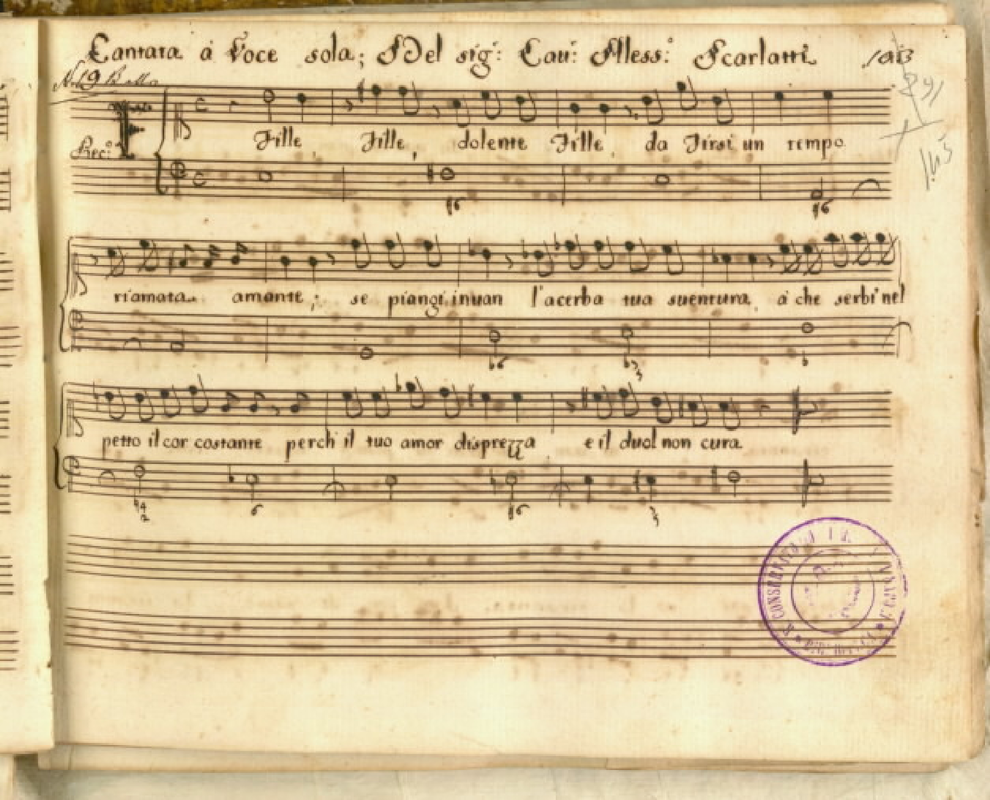 Cantata à Voce sola; Del sig:r Cau:r Aless:o Scarlatti
193
891
N. 19 Bella
143
Rec:o
Fille Fille, dolente Fille, da Tirsi un tempo
riamata amante; se piangi inuan l'acerba tua suentura, à che serbi nel
petto il cor costante perch'il tuo amor disprezza e il duol non cura
R. CONSERVATORIO NAPOLI
BIBLIOTECA